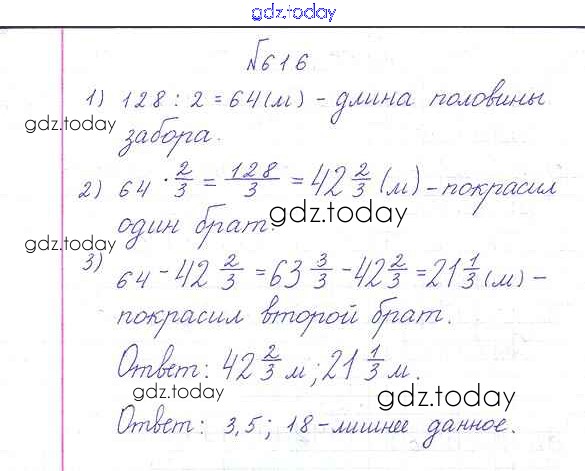 gdz.today
№616
1) 128 : 2 = 64 (м) - длина половины
gdz.today
забора.
2) 64 · 2/3 = 128/3 = 42 2/3 (м) - покрасил
один брат.
gdz.today
gdz.today
3) 64 - 42 2/3 = 63 3/3 - 42 2/3 = 21 1/3 (м) -
покрасил второй брат.
Ответ: 42 2/3 м; 21 1/3 м.
gdz.today
gdz.today
Ответ: 3,5; 18 - лишнее данное.